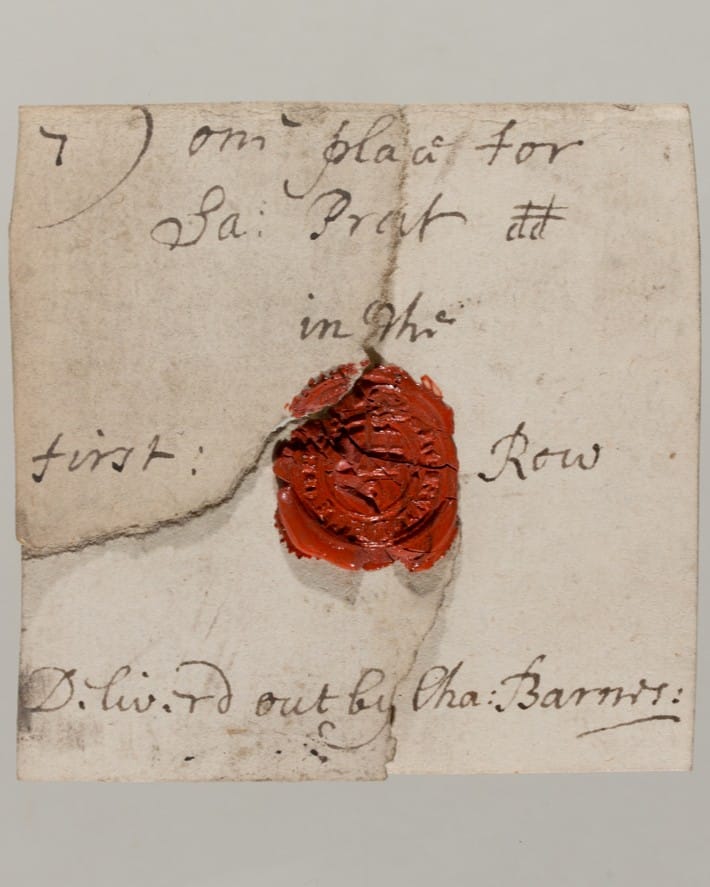 7) one place for
Sa: Prat
in the
first: Row
Deliverd out by Cha: Barnes: